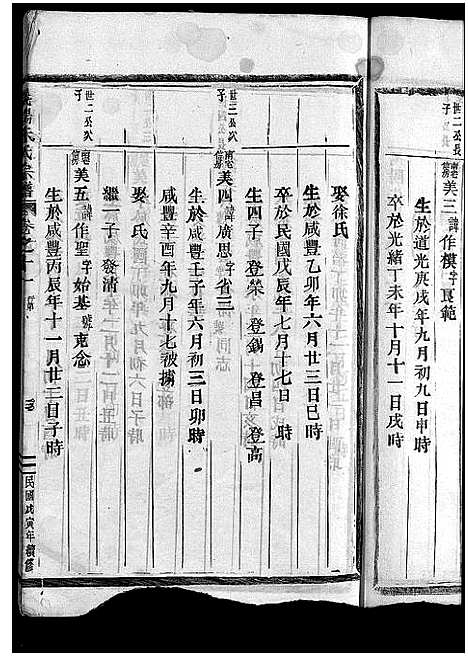 世二公長子
憲第美三諱作模字良範
生於道光庚戌年九月初九日申時
卒於光緒丁未年十月十一日戌時
娶徐氏
生於咸豐乙卯年六月廿三日巳時
卒於民國戊辰年七月十七日 時
生四子 登榮 登錫 登昌 登高
世三公次子
美四諱廣思字省三
生於咸豐壬子年六月初三日卯時
咸豐辛酉年九月十七被擄
娶 氏
繼一子 發清
世二公次子
美五諱作聖字始基號克念
生於咸豐丙辰年十一月廿三日子時
氏宗譜 卷之十一
民國戊寅年續修